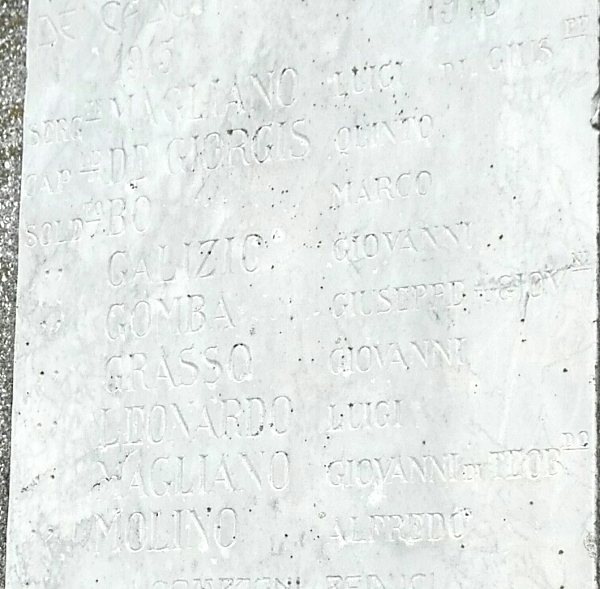 1915
SERG.TE MAGLIANO LUIGI DI GIUS.PE
CAP.LE DE GIORGIS QUINTO
SOLD.TO BO MARCO
GALIZIO GIOVANNI
GOMBA GIUSEPPE FU GIOV.NI
GRASSO GIOVANNI
LEONARDO LUIGI
MAGLIANO GIOVANNI DI TEOR.DO
MOLINO ALFREDO
REDUCI